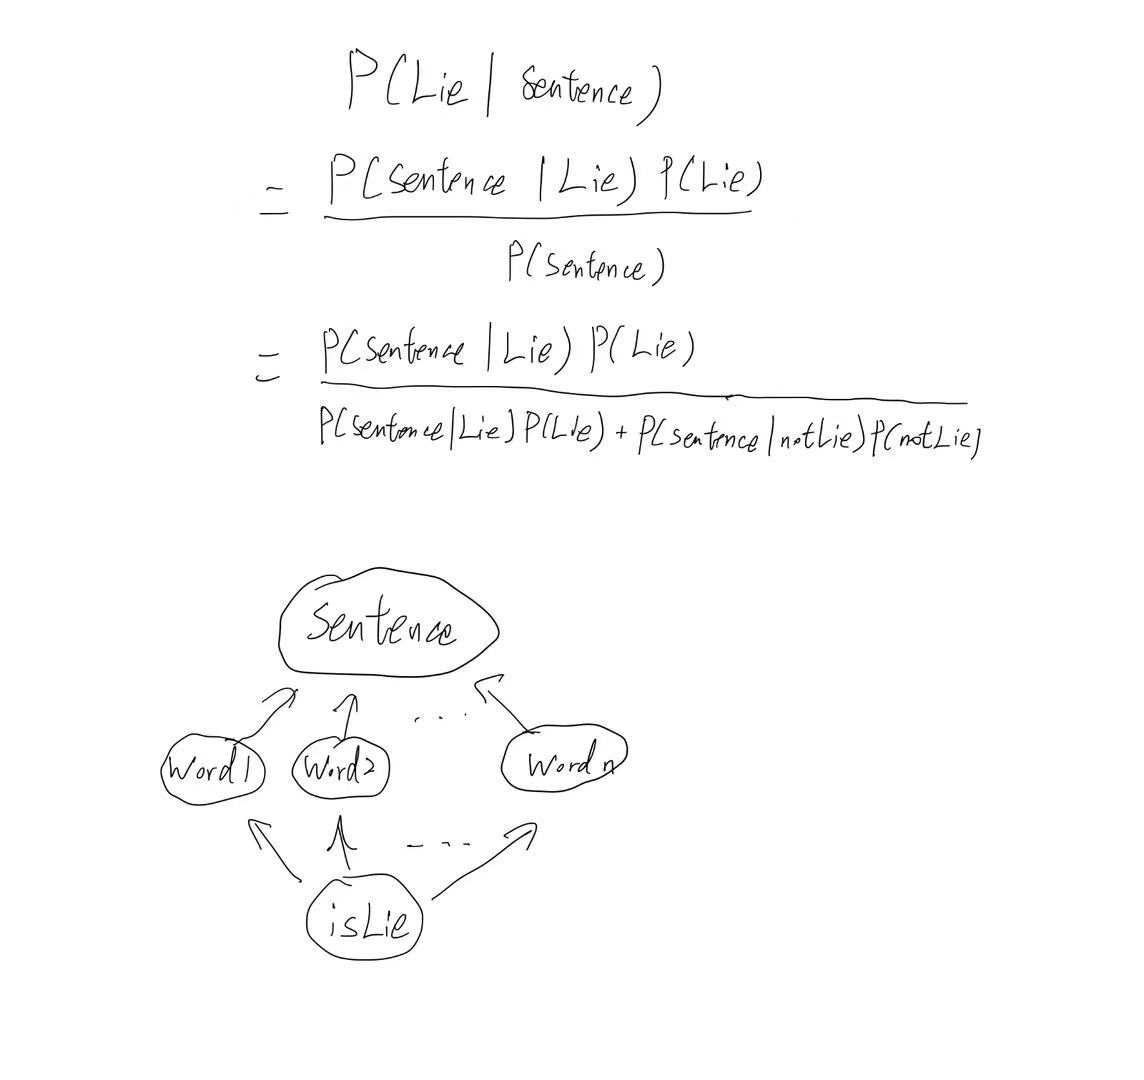 P(Lie | Sentence)
= P(Sentence | Lie) P(Lie)
P(Sentence)
= P(Sentence | Lie) P(Lie)
P(Sentence | Lie) P(Lie) + P(Sentence | notLie) P(notLie)
Sentence
...
Word1 Word2 Word n
---
isLie